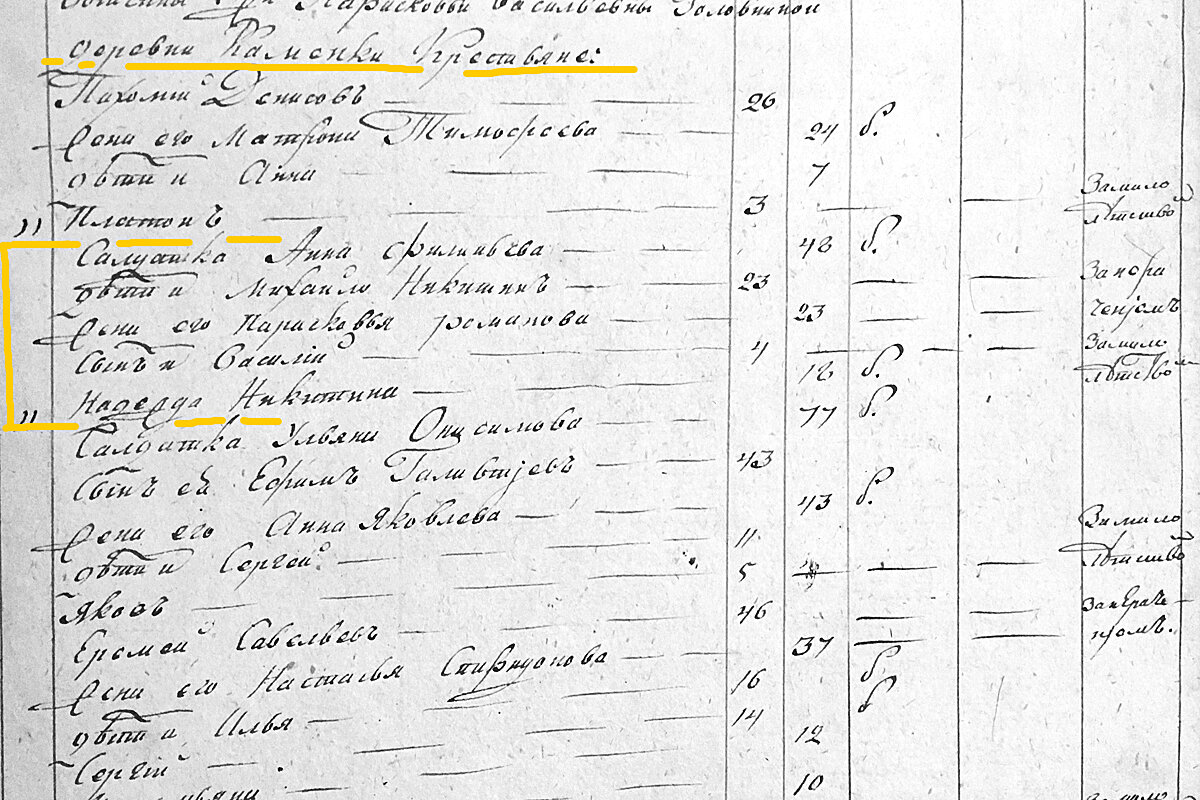 Парасковьи Васильевны Головниной
деревни Каменки Крестьяне:
Пахомiй Денисовъ 26
Жена его Матрона Тимофеева 24 б.
дети и Анна 7
Платонъ 3 Замало
летствомъ
Салдатка Анна филипьева 48 б.
дети и Михаило Никитинъ 23
Жена его Парасковья романова 23
Сынъ и Василiй 4 Замало
летствомъ
Надежда Никитина 18 б.
Салдатка Ульяна Онисимова 77 б.
Сынъ ей Ефимъ 43
Жена его Анна Яковлева 43 б.
дети и Сергей 11 Замало
летствомъ
Яковъ 5
Еремей Савельевъ 46
Жена его Настасья Спиридонова 37 б.
дети и Илья 16 б
Сергiй 14
12
10